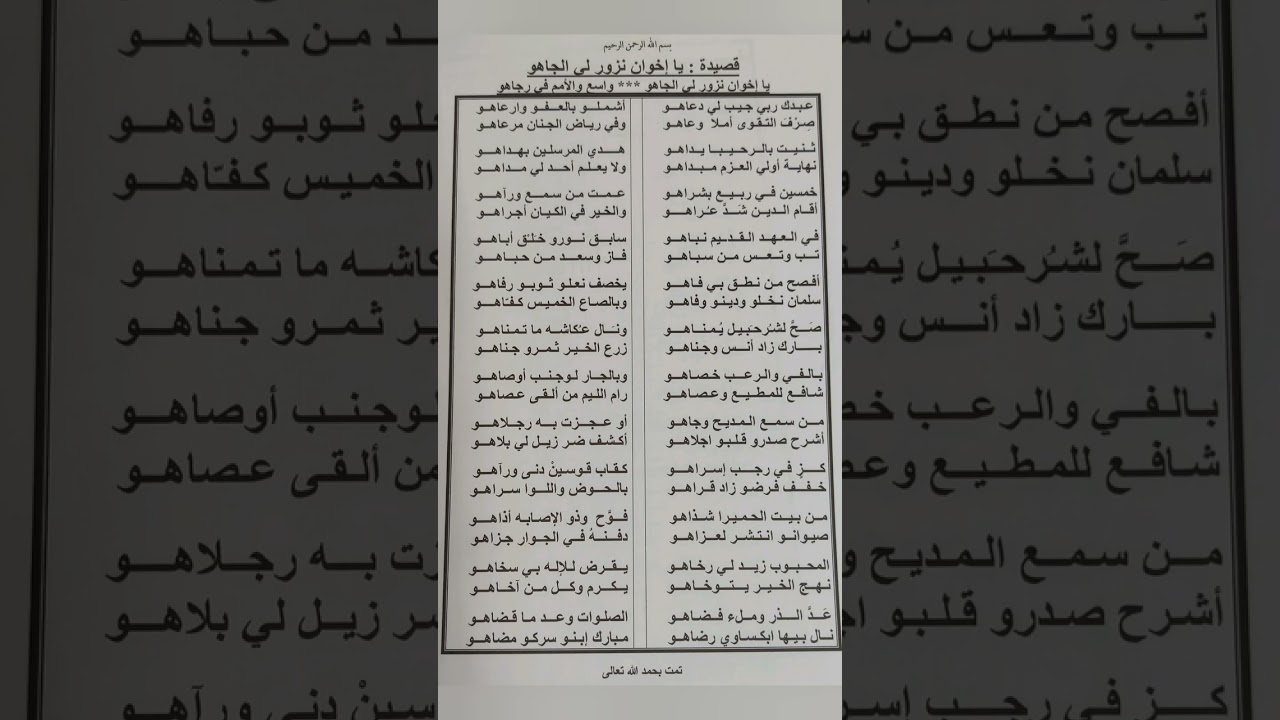 بسم الله الرحمن الرحيم
قصيدة : يا إخوان نزور لي الجاهو
يا إخوان نزور لي الجاهو *** واسع والأمم في رجاهو
عبدك ربي جيب لي دعاهو أشملو بالعفو وارعاهو
صِرْفَ التقوى أملا وعاهو وفي رياض الجنان مرعاهو
ثنيت بالرحيبا يداهو هدي المرسلين بهداهو
نهاية أولي العزم مبداهو ولا يعلم أحد لي مداهو
خمسين في ربيع بشراهو عمت من سمع ورآهو
أقام الدين شَدَّ عُراهو والخير في الكيان أجراهو
في العهد القديم نباهو سابق نورو خَلَق أباهو
تب وتعس من سباهو فاز وسعد من حباهو
أفصح من نطق بي فاهو يخصف نعلو ثوبو رفاهو
سلمان نخلو ودينو وفاهو وبالصاع الخميس كفّاهو
صَحَّ لشُرحَبيل يُمناهو ونال عكاشه ما تمناهو
بارك زاد أنس وجناهو زرع الخير ثمرو جناهو
بالفي والرعب خصاهو وبالجار لوجنب أوصاهو
شافع للمطيع وعصاهو رام الليم من ألقى عصاهو
من سمع المديح وجاهو أو عجزت به رجلاهو
أشرح صدرو قلبو اجلاهو أكشف ضر زيل لي بلاهو
كز في رجب إسراهو كقاب قوسينْ دنى ورآهو
خفف فرضو زاد قراهو بالحوض واللوا سراهو
من بيت الحميرا شذاهو فوَّح وذو الإصابه أذاهو
صيوانو انتشر لعزاهو دفنهُ في الجوار جزاهو
المحبوب زيد لي رخاهو يقرض للإله بي سخاهو
نهج الخير يتوخاهو يكرم وكل من آخاهو
عَدَّ الذر وملء فضاهو الصلوات وعد ما قضاهو
نال بيها ابكساوي رضاهو مبارك إبنو سركو مضاهو
تمت بحمد الله تعالى